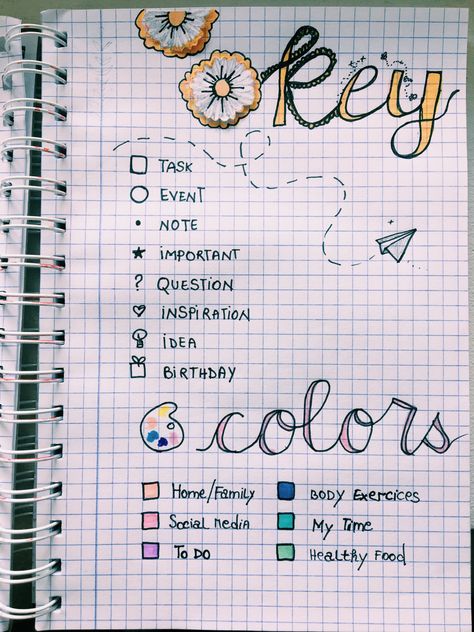 Key
TASK
EVENT
NOTE
iMPORTANT
? QUESTiON
iNSPiRATiON
iDEA
BiRTHDAY
colors
Home/Family
Social Media
To DO
BODY Exercices
My Time
Healthy Food